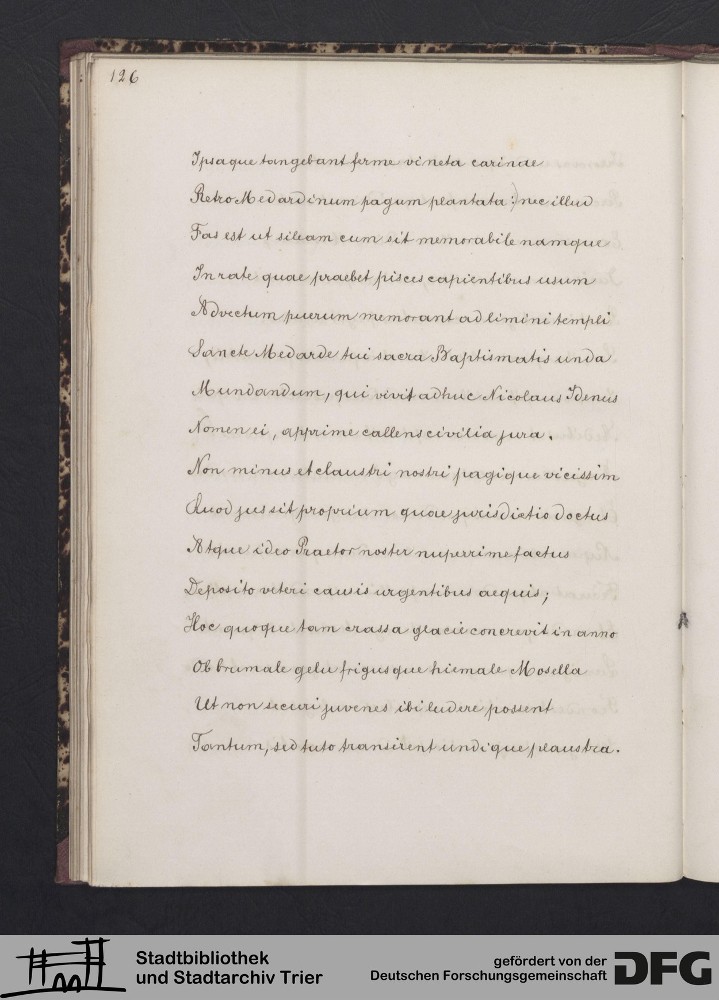 126
Ipsaque tangebant ferme vineta carinae
Retro Medardinum pagum plantata:) nec illud
Fas est ut sileam cum sit memorabile namque
In rate quae praebet pisces capientibus usum
Advectum puerum memorant ad limini templi
Sancte Medarde tui sacra Baptismatis unda
Mundandum, qui vivit adhuc Nicolaus Idenus
Nomen ei, apprime callens civilia jura.
Non minus et claustri nostri pagique vicissim
Quod jus sit proprium quae jurisdictio doctus
Atque ideo Praetor noster nuperrime factus
Deposito veteri causis urgentibus aequis;
Hoc quoque tam crassa glacie concrevit in anno
Ob brumale gelu frigusque hiemale Mosella
Ut non securi juvenes ibi ludere possent
Tantum, sed tuto transirent undique plaustra.
Stadtbibliothek
und Stadtarchiv Trier
gefördert von der
Deutschen Forschungsgemeinschaft
DFG